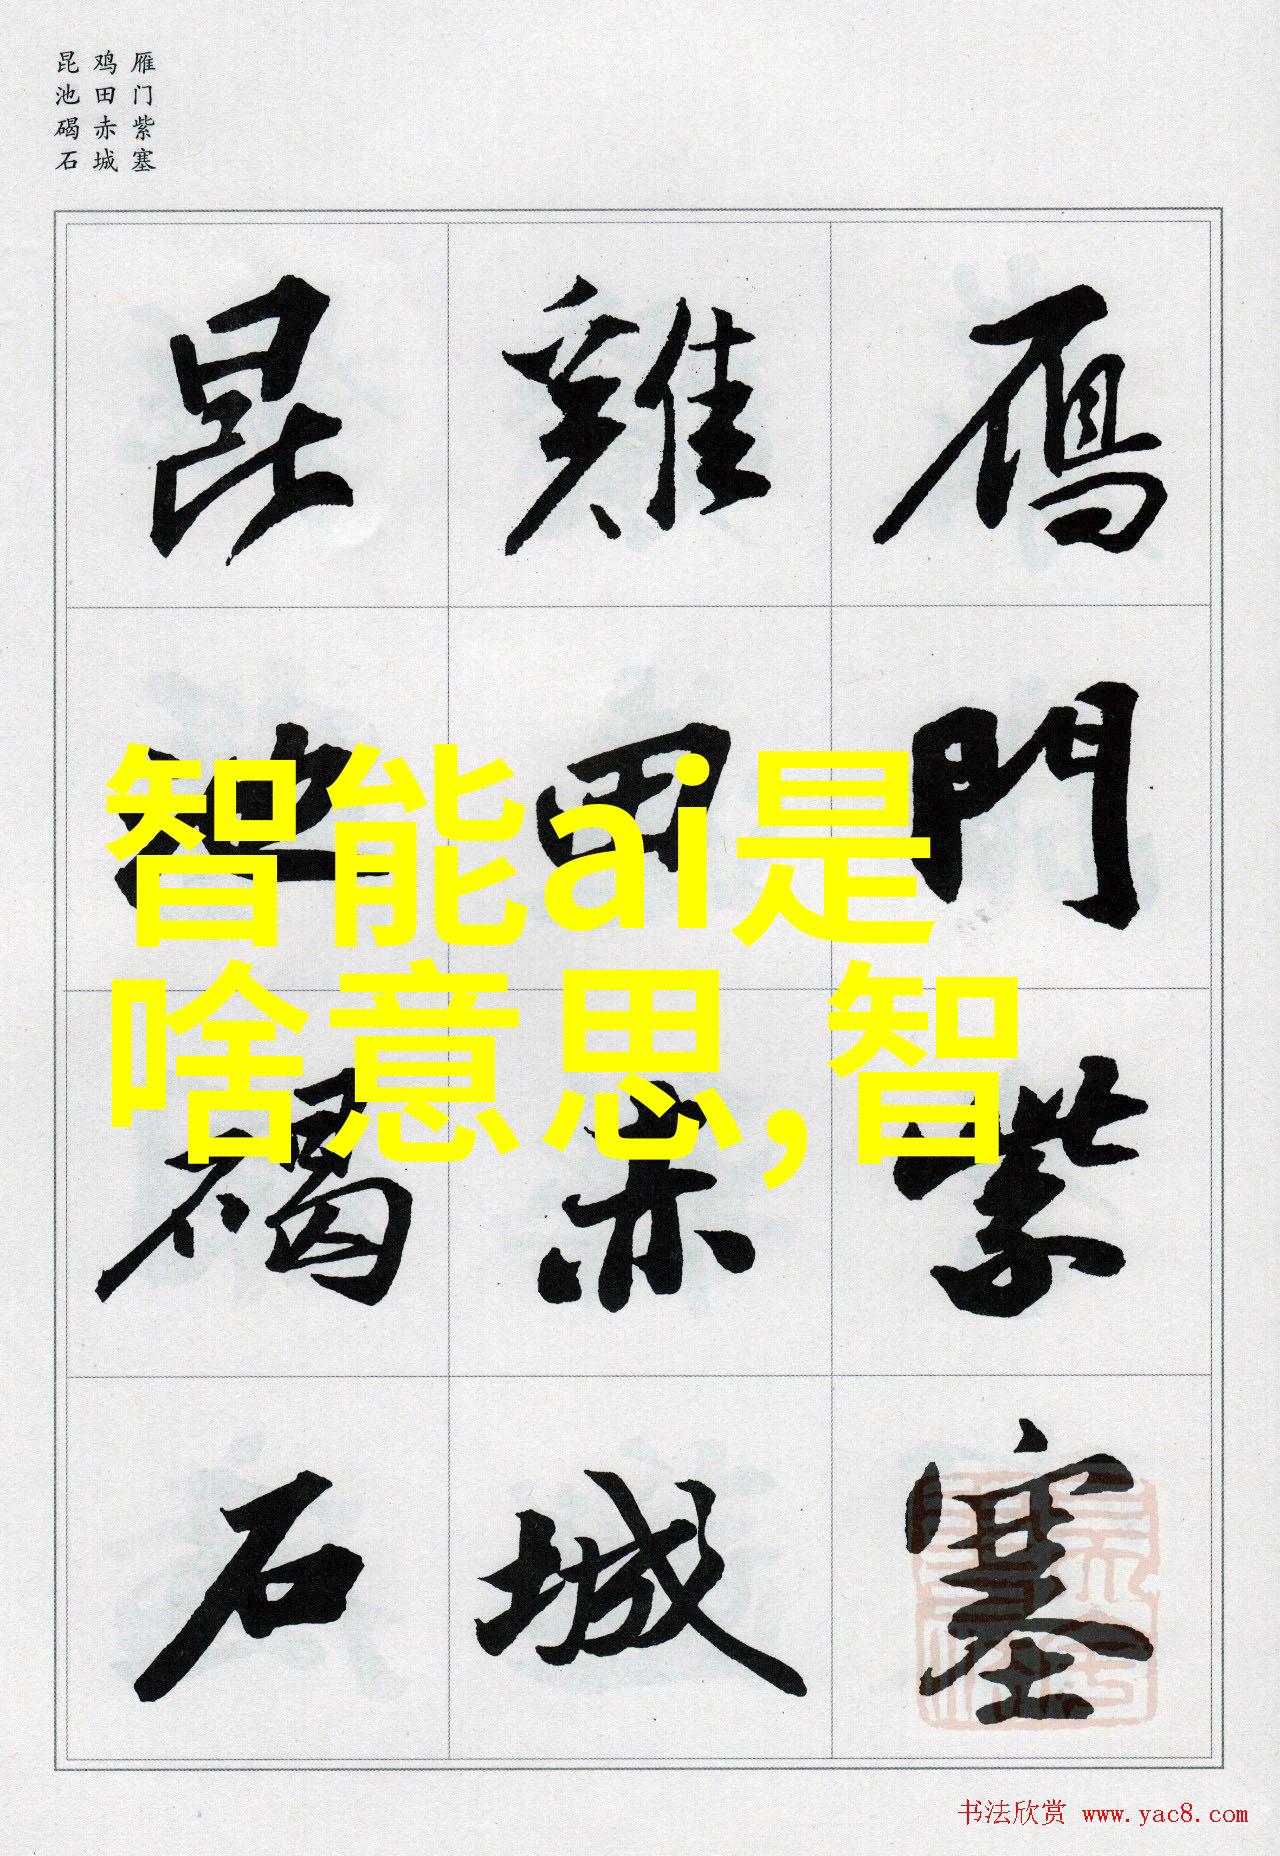 雁门紫塞
鸡田赤城
昆池碣石
鴈門紫塞
雞田赤城
昆池碣石
智能ai是
啥意思,智
书法欣赏 www.yac8.com